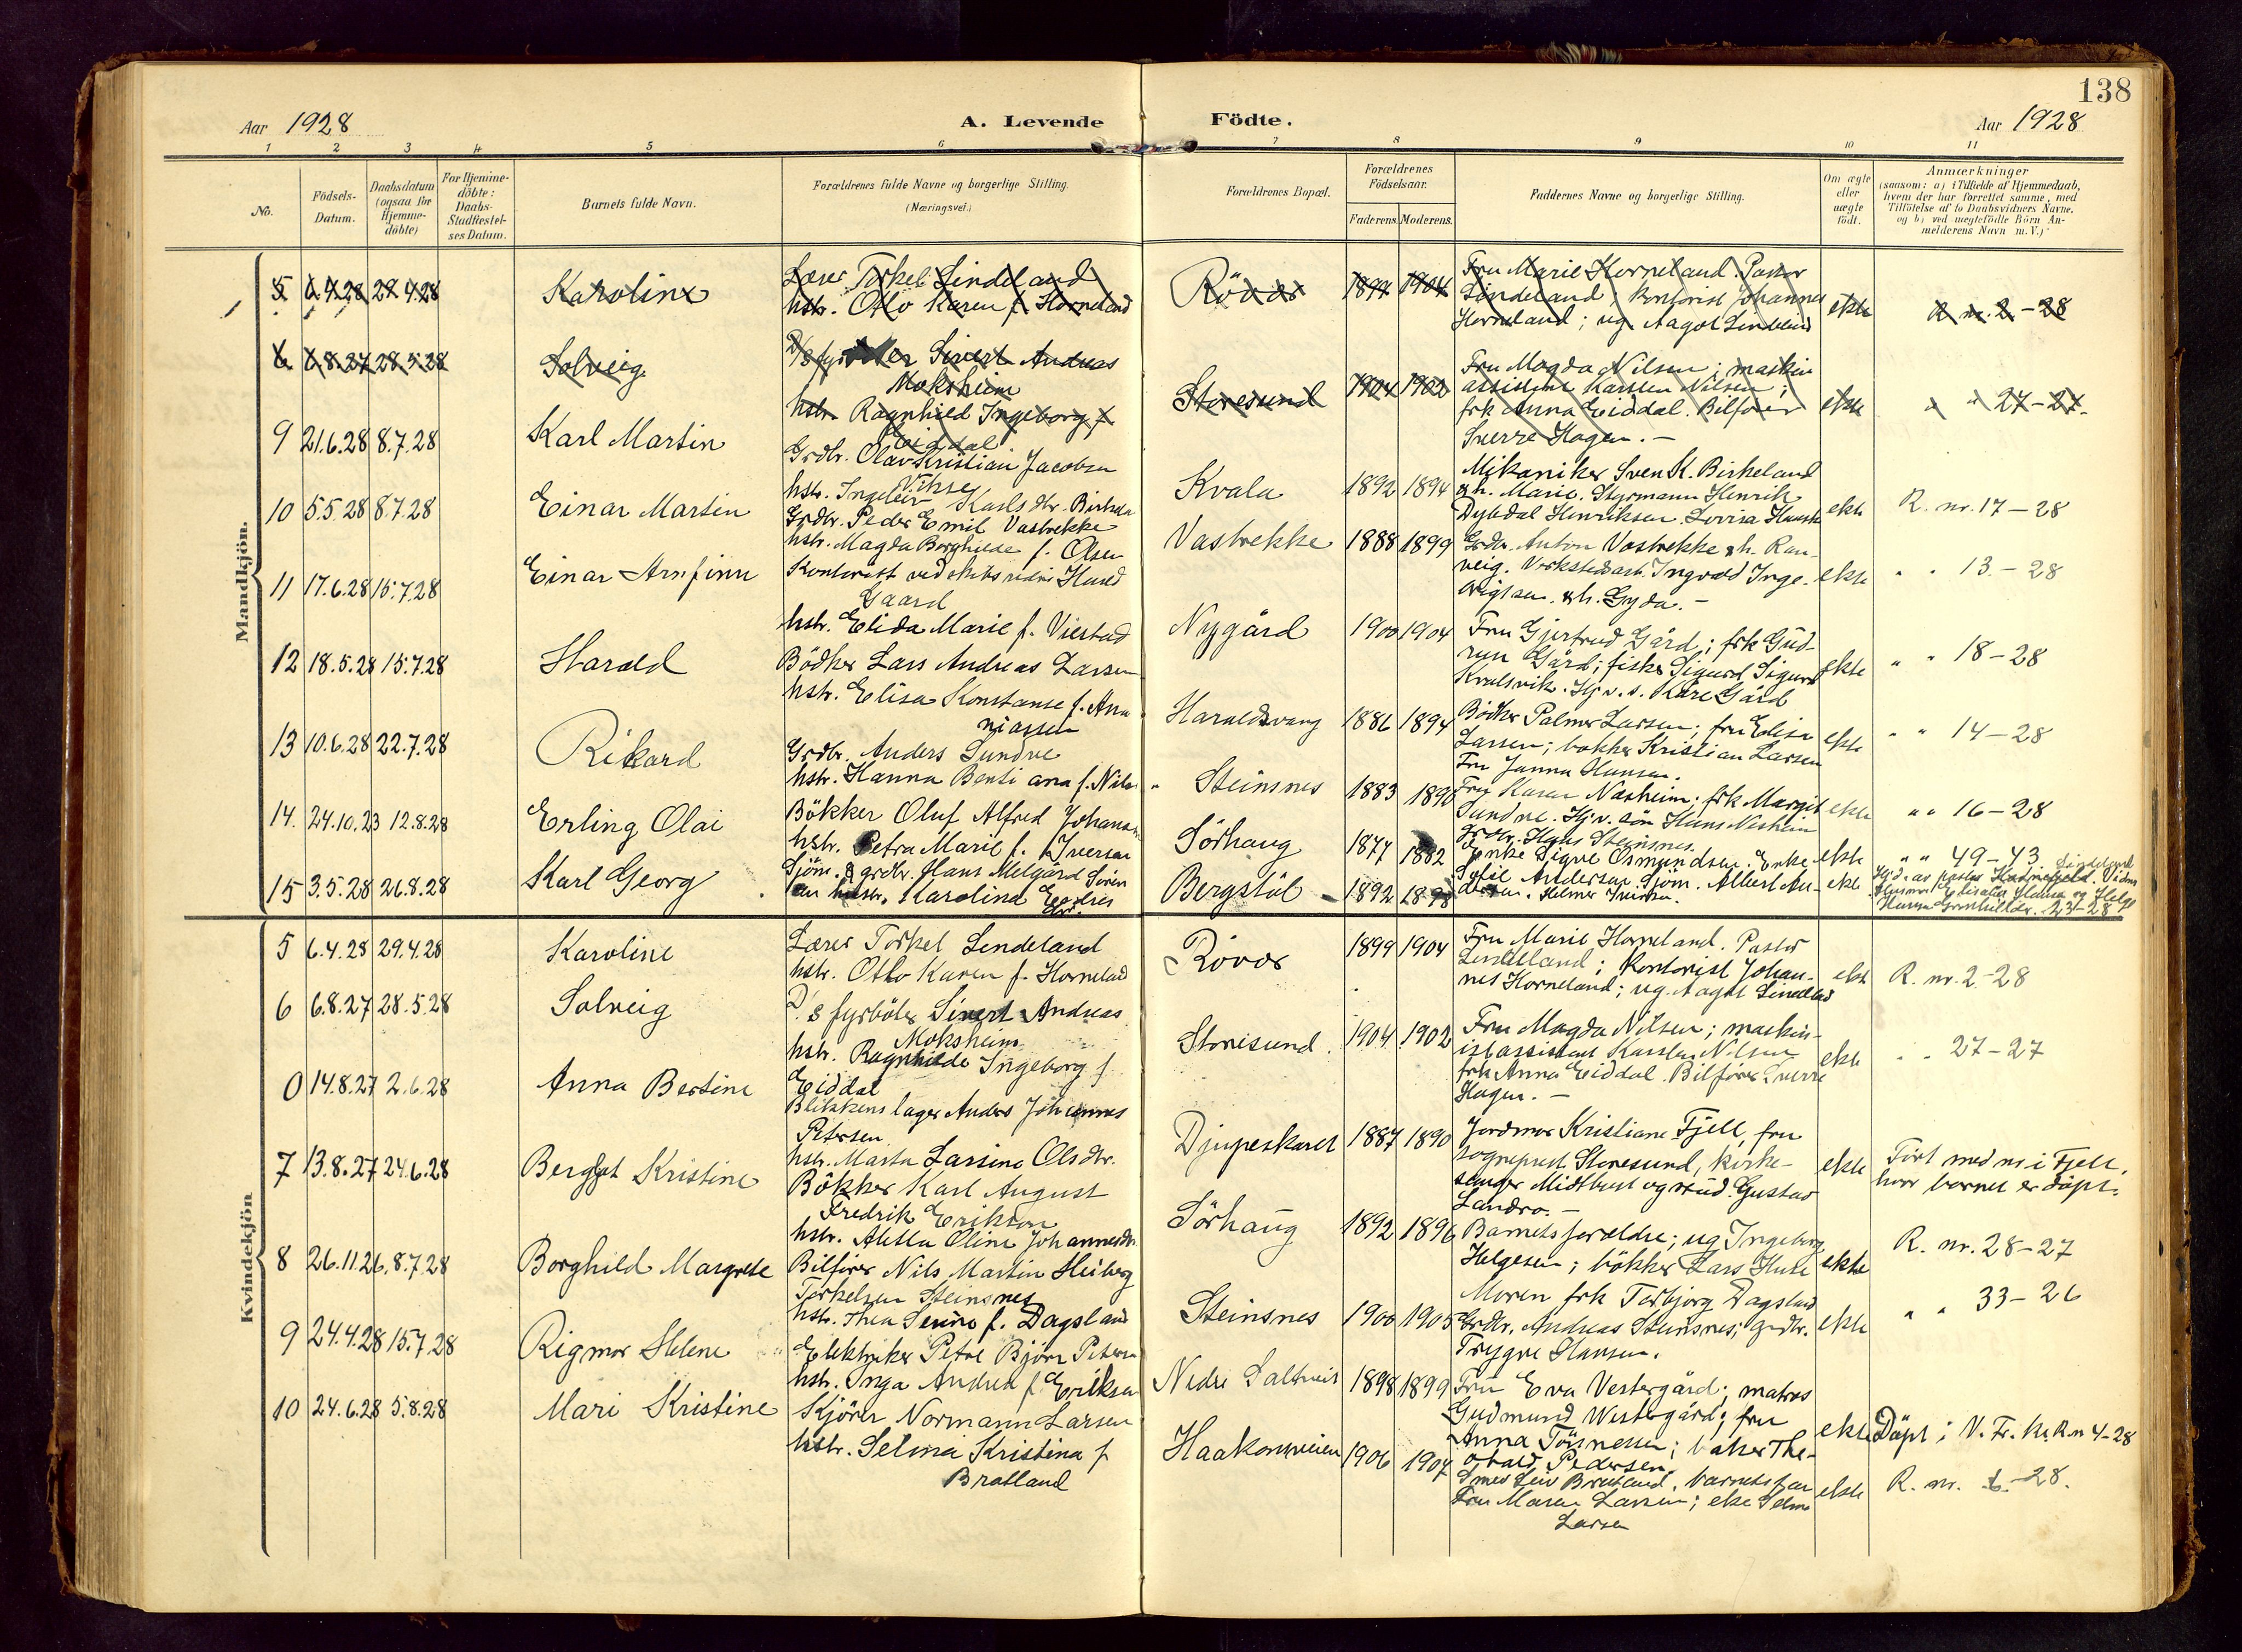 138
Aar 1928
A. Levende Födte.
Aar 1928
1 2 3 4 5 6 7 8 9 10 11
No.
Födsels-
Datum.
Daabsdatum
(ogsaa for
Hjemme-
döbte)
For Hjemme-
döbte:
Daabs-
Stadfæstel-
ses Datum.
Barnets fulde Navn.
Forældrenes fulde Navne og borgerlige Stilling.
(Næringsvei.)
Forældrenes Bopæl.
Forældrenes
Födselsaar.
Faderens. Moderens.
Faddernes Navne og borgerlige Stilling.
Om ægte
eller
uægte
födt.
Anmærkninger
(saasom: a) i Tilfælde af Hjemmedaab,
hvem der har forrettet samme, med
Tilföielse af to Daabsvidners Navne,
og b) ved uægtefödte Börn An-
melderens Navn m. V.)
Mandkjön.
5 6.4.28 29.4.28 Karoline
Lærer Torkel Lindeland
hstr. Otto Karen f. Horneland
Rövær 1899 1904
Fru Marie Horneland. Pastor
Lindeland, kontorist Johannes
Horneland; ug. Aagot Lindeland
ekte
R. nr. 2-28
6 6.8.27 28.5.28 Solveig
D/s fyrböter Sivert Andreas
Moksheim
hstr. Ragnhild Ingeborg f.
Eiddal
Storesund 1904 1902
Fru Magda Nilsen; maskin
assistent Karsten Nilsen;
frk Anna Eiddal. Bilförer
Sverre Hagen. -
ekte
" " 27-27-
9 21.6.28 8.7.28 Karl Martin
Grdbr. Olav Kristian Jacobsen
Vikse
hstr. Ingeleiv Karls dtr. Birkeland
Kvala 1892 1894
Mikaniker Sven K. Birkeland
& h. Marie. Styrmann Henrik
Dybdal Henriksen. Lovisa
ekte
R. nr. 17-28
10 5.5.28 8.7.28 Einar Martin
Grdbr. Peder Emil Vastrekke
hstr. Magda Borghilde f. Olsen
Vastrekke 1888 1899
Grdbr. Anton Vastrekke & h. Ran-
veig. Verkstedsarb. Ingvald Inge-
brigtsen. & h. Gyda. -
ekte
" " 13-28
11 17.6.28 15.7.28 Einar Arnfinn
Kontorist ved skibsrederi
Gaard
hstr. Elida Marie f. Viestad
Nygård 1900 1904
Fru Gjertrud Gård; frk Gud-
run Gård; fisker Sigurd Sigurd
Kvalsvik. Hj v. s. Kåre Gård
ekte
" " 18-28
12 18.5.28 15.7.28 Harald
Bödker Lars Andreas Larsen
hstr. Elisa Konstanse f. Ana
niassen
Haraldsvang 1886 1894
Bödker Palmer Larsen; fru Elisa
Larsen; bökker Kristian Larsen
Fru Janna Hansen.
ekte
" " 14-28
13 10.6.28 22.7.28 Rikard
Grdbr. Anders Sundve
hstr. Hanna Bentiana f. Nils
Steinsnes 1883 1890
Fru Karen Nasheim; frk Margit
Sundve. Hj v. sön Hans Nesheim
Grdbr. Hans Steinsnes.
ekte
" " 16-28
14. 24.10.23 12.8.28 Erling Olai
Bökker Oluf Alfred Johansen
hstr. Petra Marie f. Iversen
Sörhaug 1877 1882
Enke Signe Osmundsen. Enke
Sylvi Andersen. Sjöm. Albert An-
dersen. Helmer Iversen.
ekte
" " 49-43
15 3.5.28 26.8.28 Karl Georg
Sjöm. & grdbr. Hans Melgård Sören
sen hustr. Karoline Endres
dtr.
Bergstöl 1892 1898
ekte
Hjd. av pastor Lindeland. Vidner
23-28
Kvindekjön
5 6.4.28 29.4.28 Karoline
Lærer Torkel Lindeland
hstr. Otto Karen f. Horneland
Rövær 1899 1904
Fru Marie Horneland. Pastor
Lindeland; kontorist Johan-
nes Horneland; ug. Aagot Lindeland
ekte
R. nr. 2-28
6 6.8.27 28.5.28 Solveig
D/s fyrböter Sivert Andreas
Moksheim
hstr. Ragnhilde Ingeborg f.
Eiddal
Storesund. 1904 1902
Fru Magda Nilsen; maskin-
istassistent Karsten Nilsen
frk Anna Eiddal. Bilförer Sverre
Hagen. -
ekte
" " 27-27
0 14.8.27 2.6.28 Anna Bertine
Blikkenslager Anders Johannes
Petersen
hstr. Marta Larsine Olsdtr.
Djupeskaret 1887 1890
Jordmor Kristiane Fjell, fru
sogneprest Storesund, kirke-
sanger Midtbust og stud. Gustav
Landro. -
ekte
Fört med nr i Fjell,
hvor barnet er döpt.
7 13.8.27 24.6.28 Bergljot Kristine
Bökker Karl August
Fredrik Erikson
hstr. Aletta Oline Johannesdtr.
Sörhaug 1892 1896
Barnets foreldre; ug Ingeborg
Helgesen; bökker Lars Huse
ekte
R. nr. 28-27
8 26.11.26 8.7.28 Borghild Margrete
Bilförer Nils Martin Heiberg
Torkelsen Steinsnes
hstr. Thea Severine f. Dagsland
Steinsnes 1900 1905
Moren frk Torbjorg Dagsland
Grdbr. Andreas Steinsnes; grdbr.
Trygve Hansen.
ekte
" " 33-26
9 24.4.28 15.7.28 Rigmor Helene
Elektriker Petre Björn Petersen
hstr. Inga Andrea f. Eriksen
Nedre Saltveit 1898 1899
Fru Eva Vestergård; matros
Gudmund Westergård; fru
Anna Tönnessen; baker The-
obald Pedersen.
ekte
Döpt i V. Fr. k. R. n 4-28
10 24.6.28 5.8.28 Mari Kristine
Kjörer Normann Larsen
hstr. Selma Kristina f
Bratland
Haakonsveien 1906 1907
Smed Leiv Bratland, barnets far
Fru Maren Larsen; eke Selma
Larsen
ekte
R. nr. 6-28.